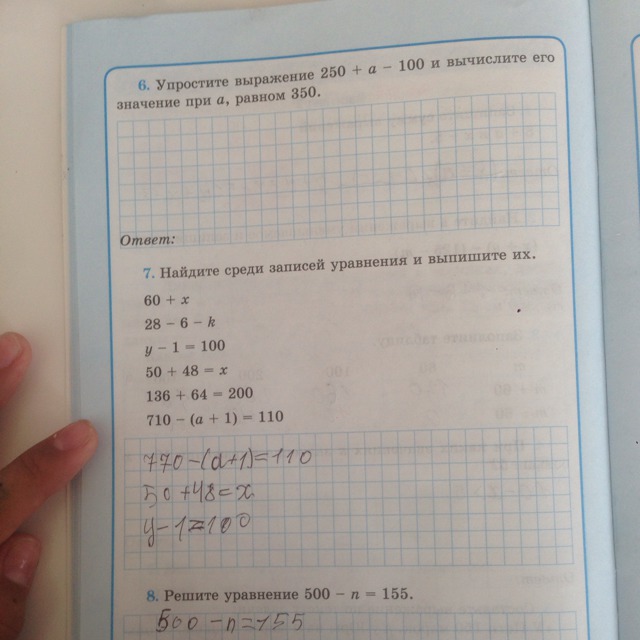 6. Упростите выражение 250 + a − 100 и вычислите его
значение при a, равном 350.
Ответ:
7. Найдите среди записей уравнения и выпишите их.
60 + x
28 − 6 − k
y − 1 = 100
50 + 48 = x
136 + 64 = 200
710 − (a + 1) = 110
770-(a+1)=110
50+48=x
y-1=100
8. Решите уравнение 500 − n = 155.
500-n=155